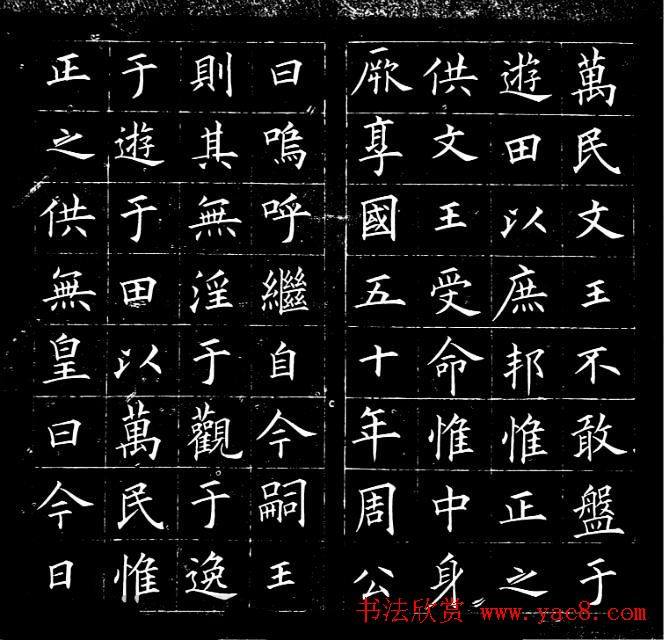 萬民文王不敢盤于
遊田以庶邦惟正之
供文王受命惟中身
厥享國五十年周公
曰嗚呼繼自今嗣王
則其無淫于觀于逸
于遊于田以萬民惟
正之供無皇曰今日
书法欣赏 www.yac8.com